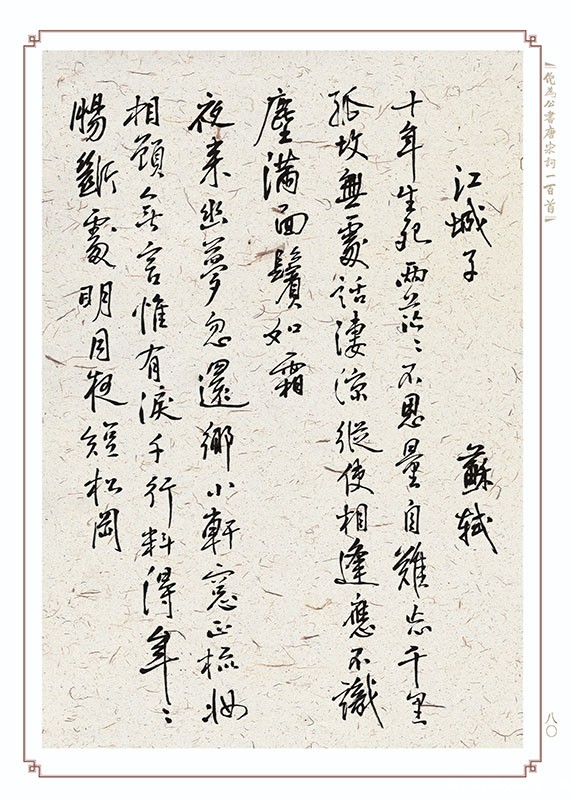 倪為公書唐宋詞一百首
江城子 蘇軾
十年生死兩茫〻不思量自難忘千里
孤坟無處話淒涼縱使相逢應不識
塵滿面鬢如霜
夜來幽夢忽還鄉小軒窓正梳妝
相顧無言惟有淚千行料得年〻
腸斷處明月夜短松岡
八〇